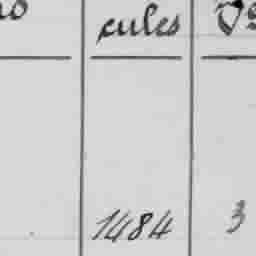 cules
1484 3